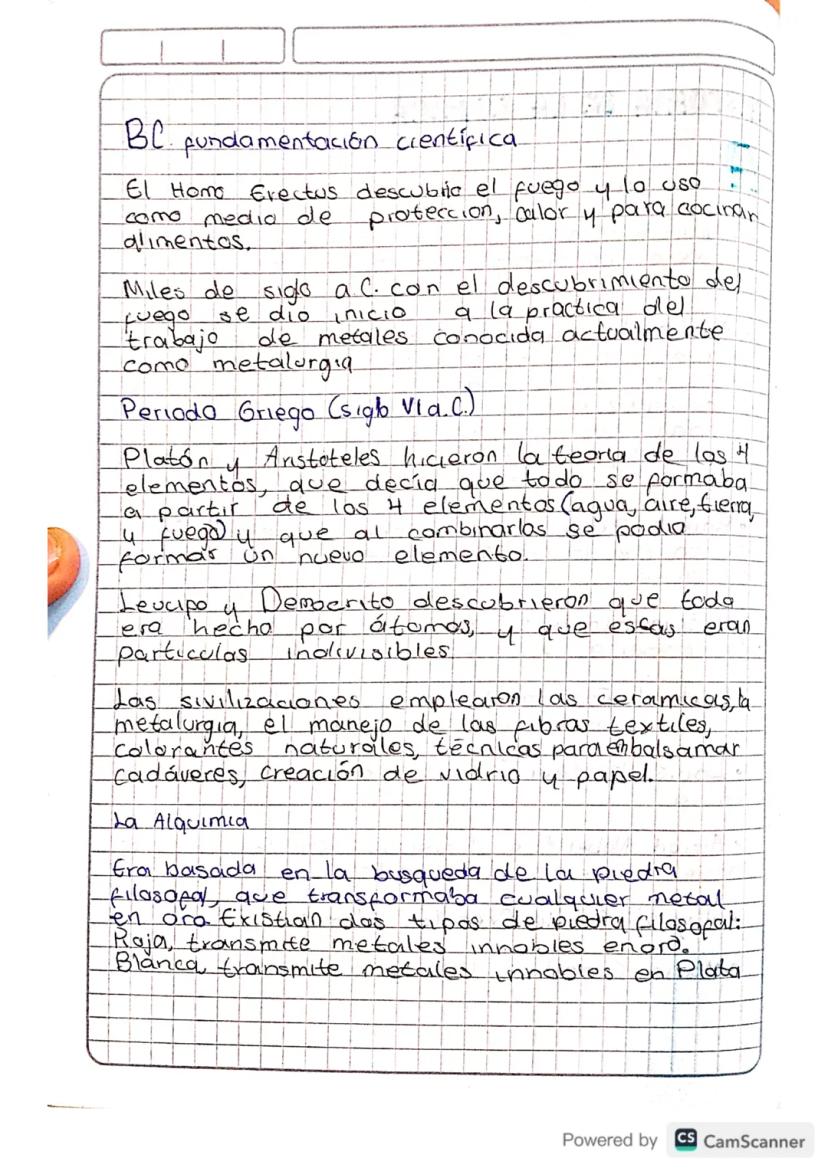 BC. fundamentación científica
El Homo Erectus descubrio el fuego y lo uso
como medio de proteccion, calor y para cocinar
alimentos.
Miles de siglo a.C. con el descubrimiento del
fuego se dio inicio a la practica del
trabajo de metales conocida actualmente
como metalurgia
Periodo Griego (siglo VI a.C.)
Platón y Aristoteles hicieron la teoria de los 4
elementos, que decía que todo se formaba
a partir de los 4 elementos (agua, aire, tierra,
y fuego) y que al combinarlos se podia
formar un nuevo elemento.
Leucipo y Democrito descubrieron que todo
era hecho por átomos, y que estas eran
particulas indivisibles
Las sivilizaciones emplearon las ceramicas, la
metalurgia, el manejo de las fibras textiles,
colorantes naturales, técnicas para embalsamar
cadáveres, creación de vidrio y papel.
La Alquimia
Era basada en la busqueda de la piedra
filosofal, que transformaba cualquier metal
en oro. Existian dos tipos de piedra filosofal:
Roja, transmite metales innobles en oro.
Blanca, transmite metales innobles en Plata
Powered by CS CamScanner